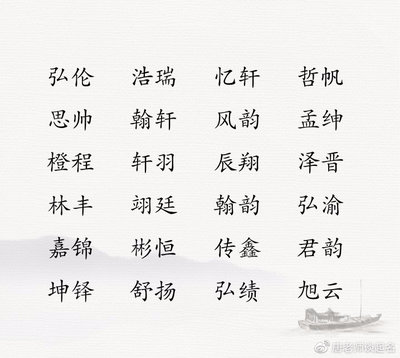 弘伦 浩瑞 忆轩 哲帆
思帅 翰轩 风韵 孟绅
橙程 轩羽 辰翔 泽晋
林丰 翊廷 翰韵 弘渝
嘉锦 彬恒 传鑫 君韵
坤铎 舒扬 弘绩 旭云
@唐老师谈起名